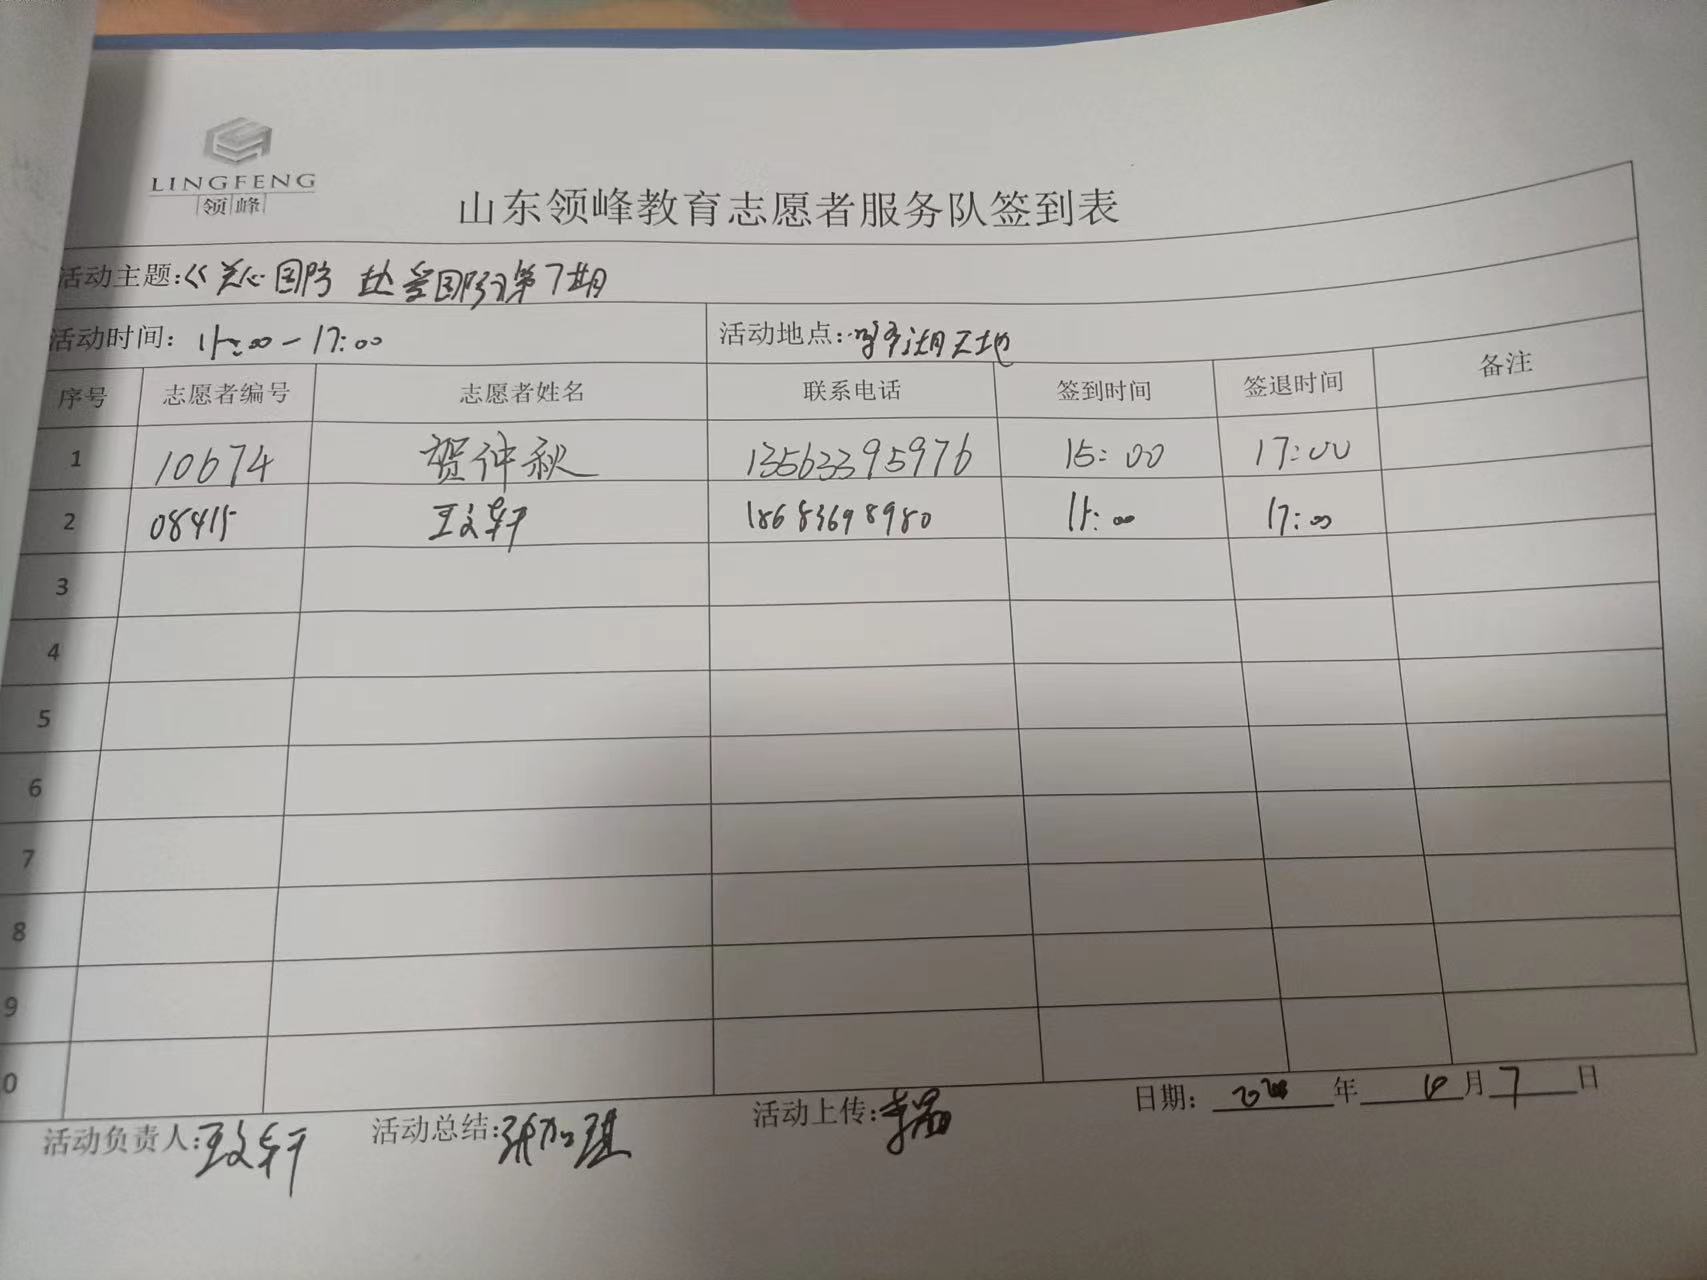 LINGFENG
领峰
山东领峰教育志愿者服务队签到表
活动主题:《关心国防 热爱国防》第7期
活动时间: 15:00-17:00 活动地点: 湖天地
序号 志愿者编号 志愿者姓名 联系电话 签到时间 签退时间 备注
1 10674 贺仲秋 13563395976 15:00 17:00
2 08415 王文轩 18683698980 15:00 17:00
3
4
5
6
7
8
9
0
活动负责人:王文轩 活动总结:张加琪 活动上传:李 日期: 年 月7日